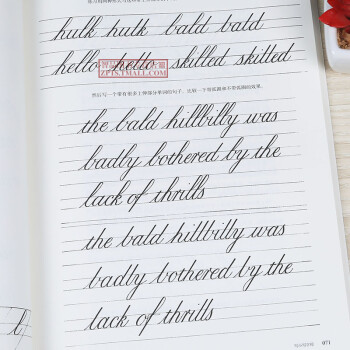 hulk hulk bald bald
ZPTS.TMALL.COM
hello hello skilled skilled
the bald hillbilly was
badly bothered by the
lack of thrills
the bald hillbilly was
badly bothered by the
lack of thrills
071